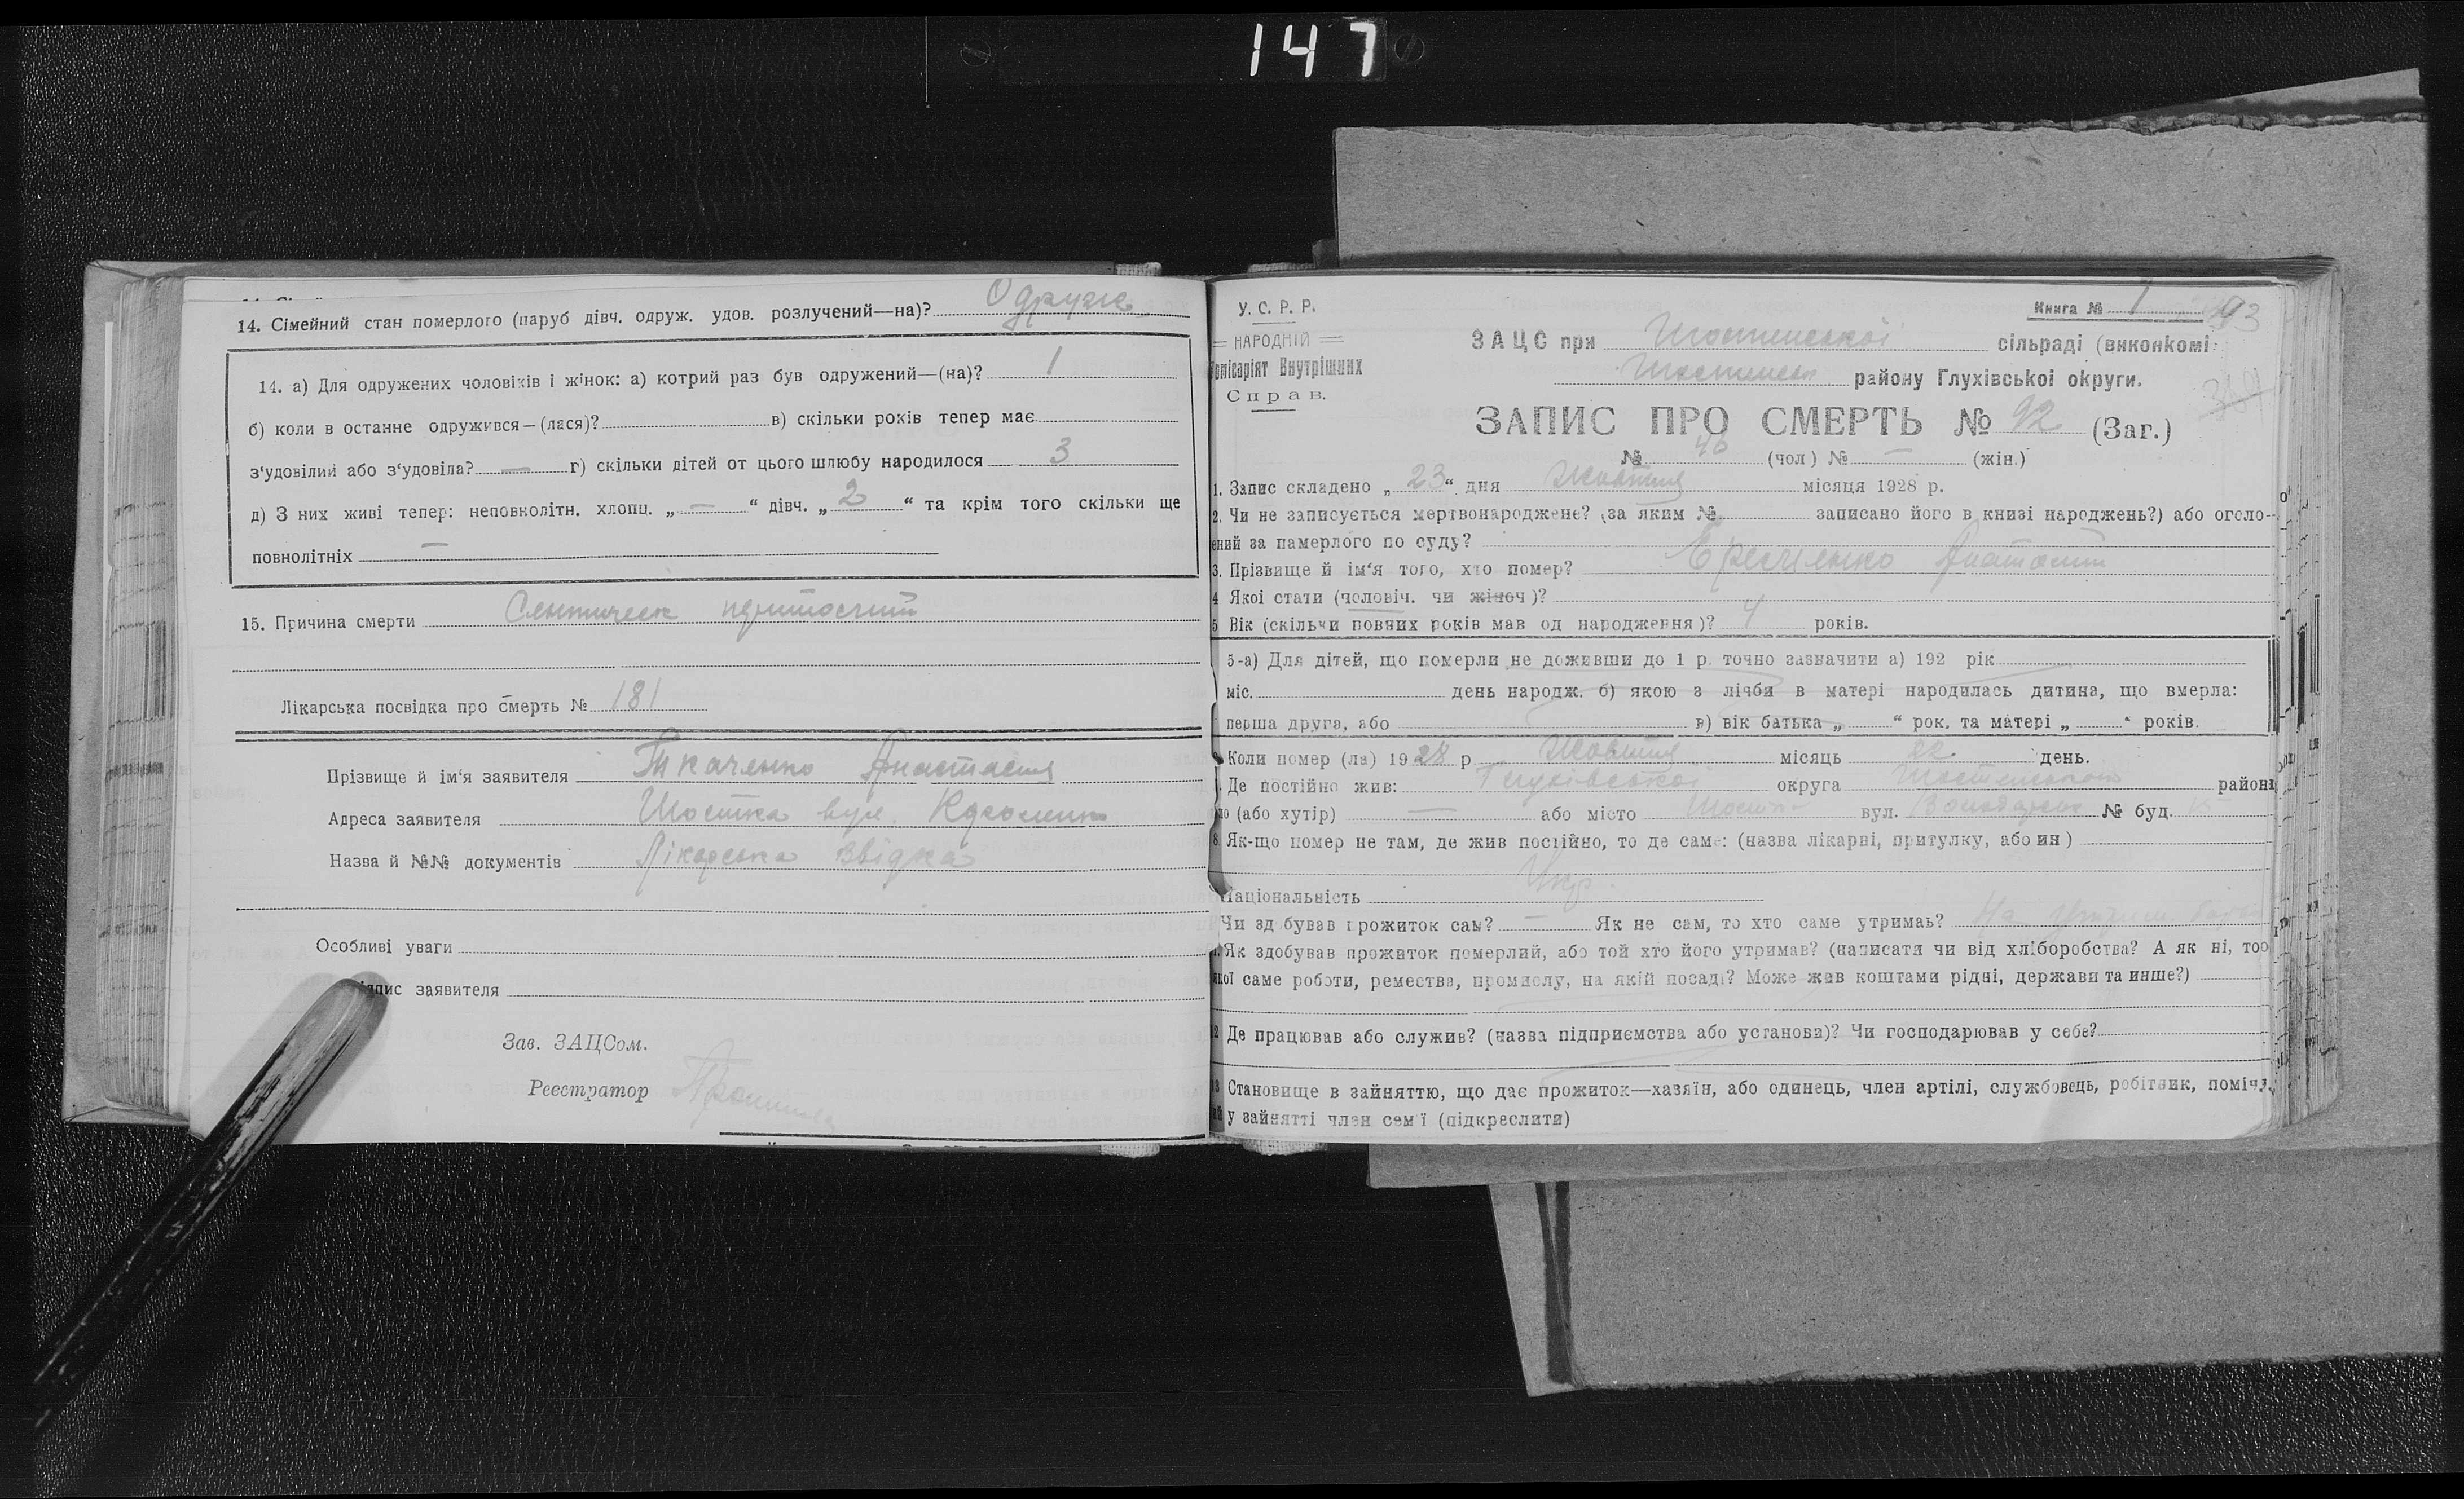 147
14. Сімейний стан померлого (паруб дівч. одруж. удов. розлучений—на)? Одруж.
14. а) Для одружених чоловіків і жінок: а) котрий раз був одружений—(на)? 1
б) коли в останне одружився—(лася)? в) скільки років тепер має
з‘удовілий або з‘удовіла? — г) скільки дітей от цього шлюбу народилося 3
д) З них живі тепер: неповнолітн. хлопц. „ — “ дівч. „ 2 “ та крім того скільки ще
повнолітніх —
15. Причина смерти
Лікарська посвідка про смерть № 181
Прізвище й ім‘я заявителя Ткаченко Анастасия
Адреса заявителя Шостка вул.
Назва й №№ документів Лікарська звідка
Особливі уваги
підпис заявителя
Зав. ЗАЦСом.
Реєстратор
У. С. Р. Р.
НАРОДНІЙ
Комісаріят Внутрішних
Справ.
Книга № 1
93
ЗАЦС при Шостенської сільраді (виконкомі
Шостенськ району Глухівської округи.
ЗАПИС ПРО СМЕРТЬ № 92 (Заг.)
№ 46 (чол) № — (жін.)
1. Запис складено „ 23 “ дня Жовтня місяця 1928 р.
2. Чи не записується мертвонароджене? (за яким № записано його в книзі народжень?) або оголо-
ений за памерлого по суду?
3. Прізвище й ім‘я того, хто помер?
4 Якої стати (чоловіч. чи жіноч)?
5 Вік (скільки повних років мав од народження)? 4 років.
5-а) Для дітей, що померли не доживши до 1 р. точно зазначити а) 192 рік
міс. день народж. б) якою з лічби в матері народилась дитина, що вмерла:
перша друга, або в) вік батька „ “ рок. та матері „ “ років.
Коли помер (ла) 1928 р Жовтня місяць 22 день.
Де постійно жив: Глухівської округа Шостенського району
ло (або хутір) — або місто Шостка вул. № буд. 15
8. Як-що помер не там, де жив постійно, то де саме: (назва лікарні, притулку, або ин)
Національність Укр.
Чи здобував прожиток сам? — Як не сам, то хто саме утримав? На утрим.
Як здобував прожиток померлий, або той хто його утримав? (написати чи від хліборобства? А як ні, то
якої саме роботи, ремества, промислу, на якій посаді? Може жив коштами рідні, держави та инше?)
12 Де працював або служив? (назва підприємства або установи)? Чи господарював у себе?
13 Становище в зайняттю, що дає прожиток—хазяїн, або одинець, член артілі, службовець, робітник, поміч
у зайнятті член сем‘ї (підкреслити)